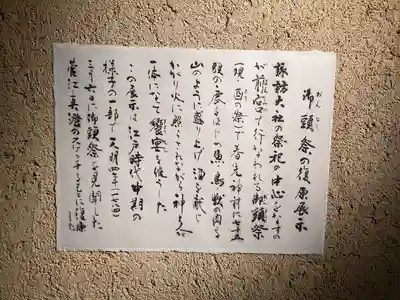 御頭祭の復原展示
おんとう
諏訪大社の祭祀の中心をなすの
が前宮で行なわれる御頭祭
(現・酉の祭)で春先神前に七十五
頭の鹿をはじめ魚・鳥・獣の肉を
山のように盛り上げ酒を献じ
かがり火に照らされながら神と人
一体になって饗宴を催した
この展示は江戸時代中期の
様子の一部で天明四年(一七八四)
三月六日に御頭祭を見聞した
菅江真澄のスケッチをもとに復原
した